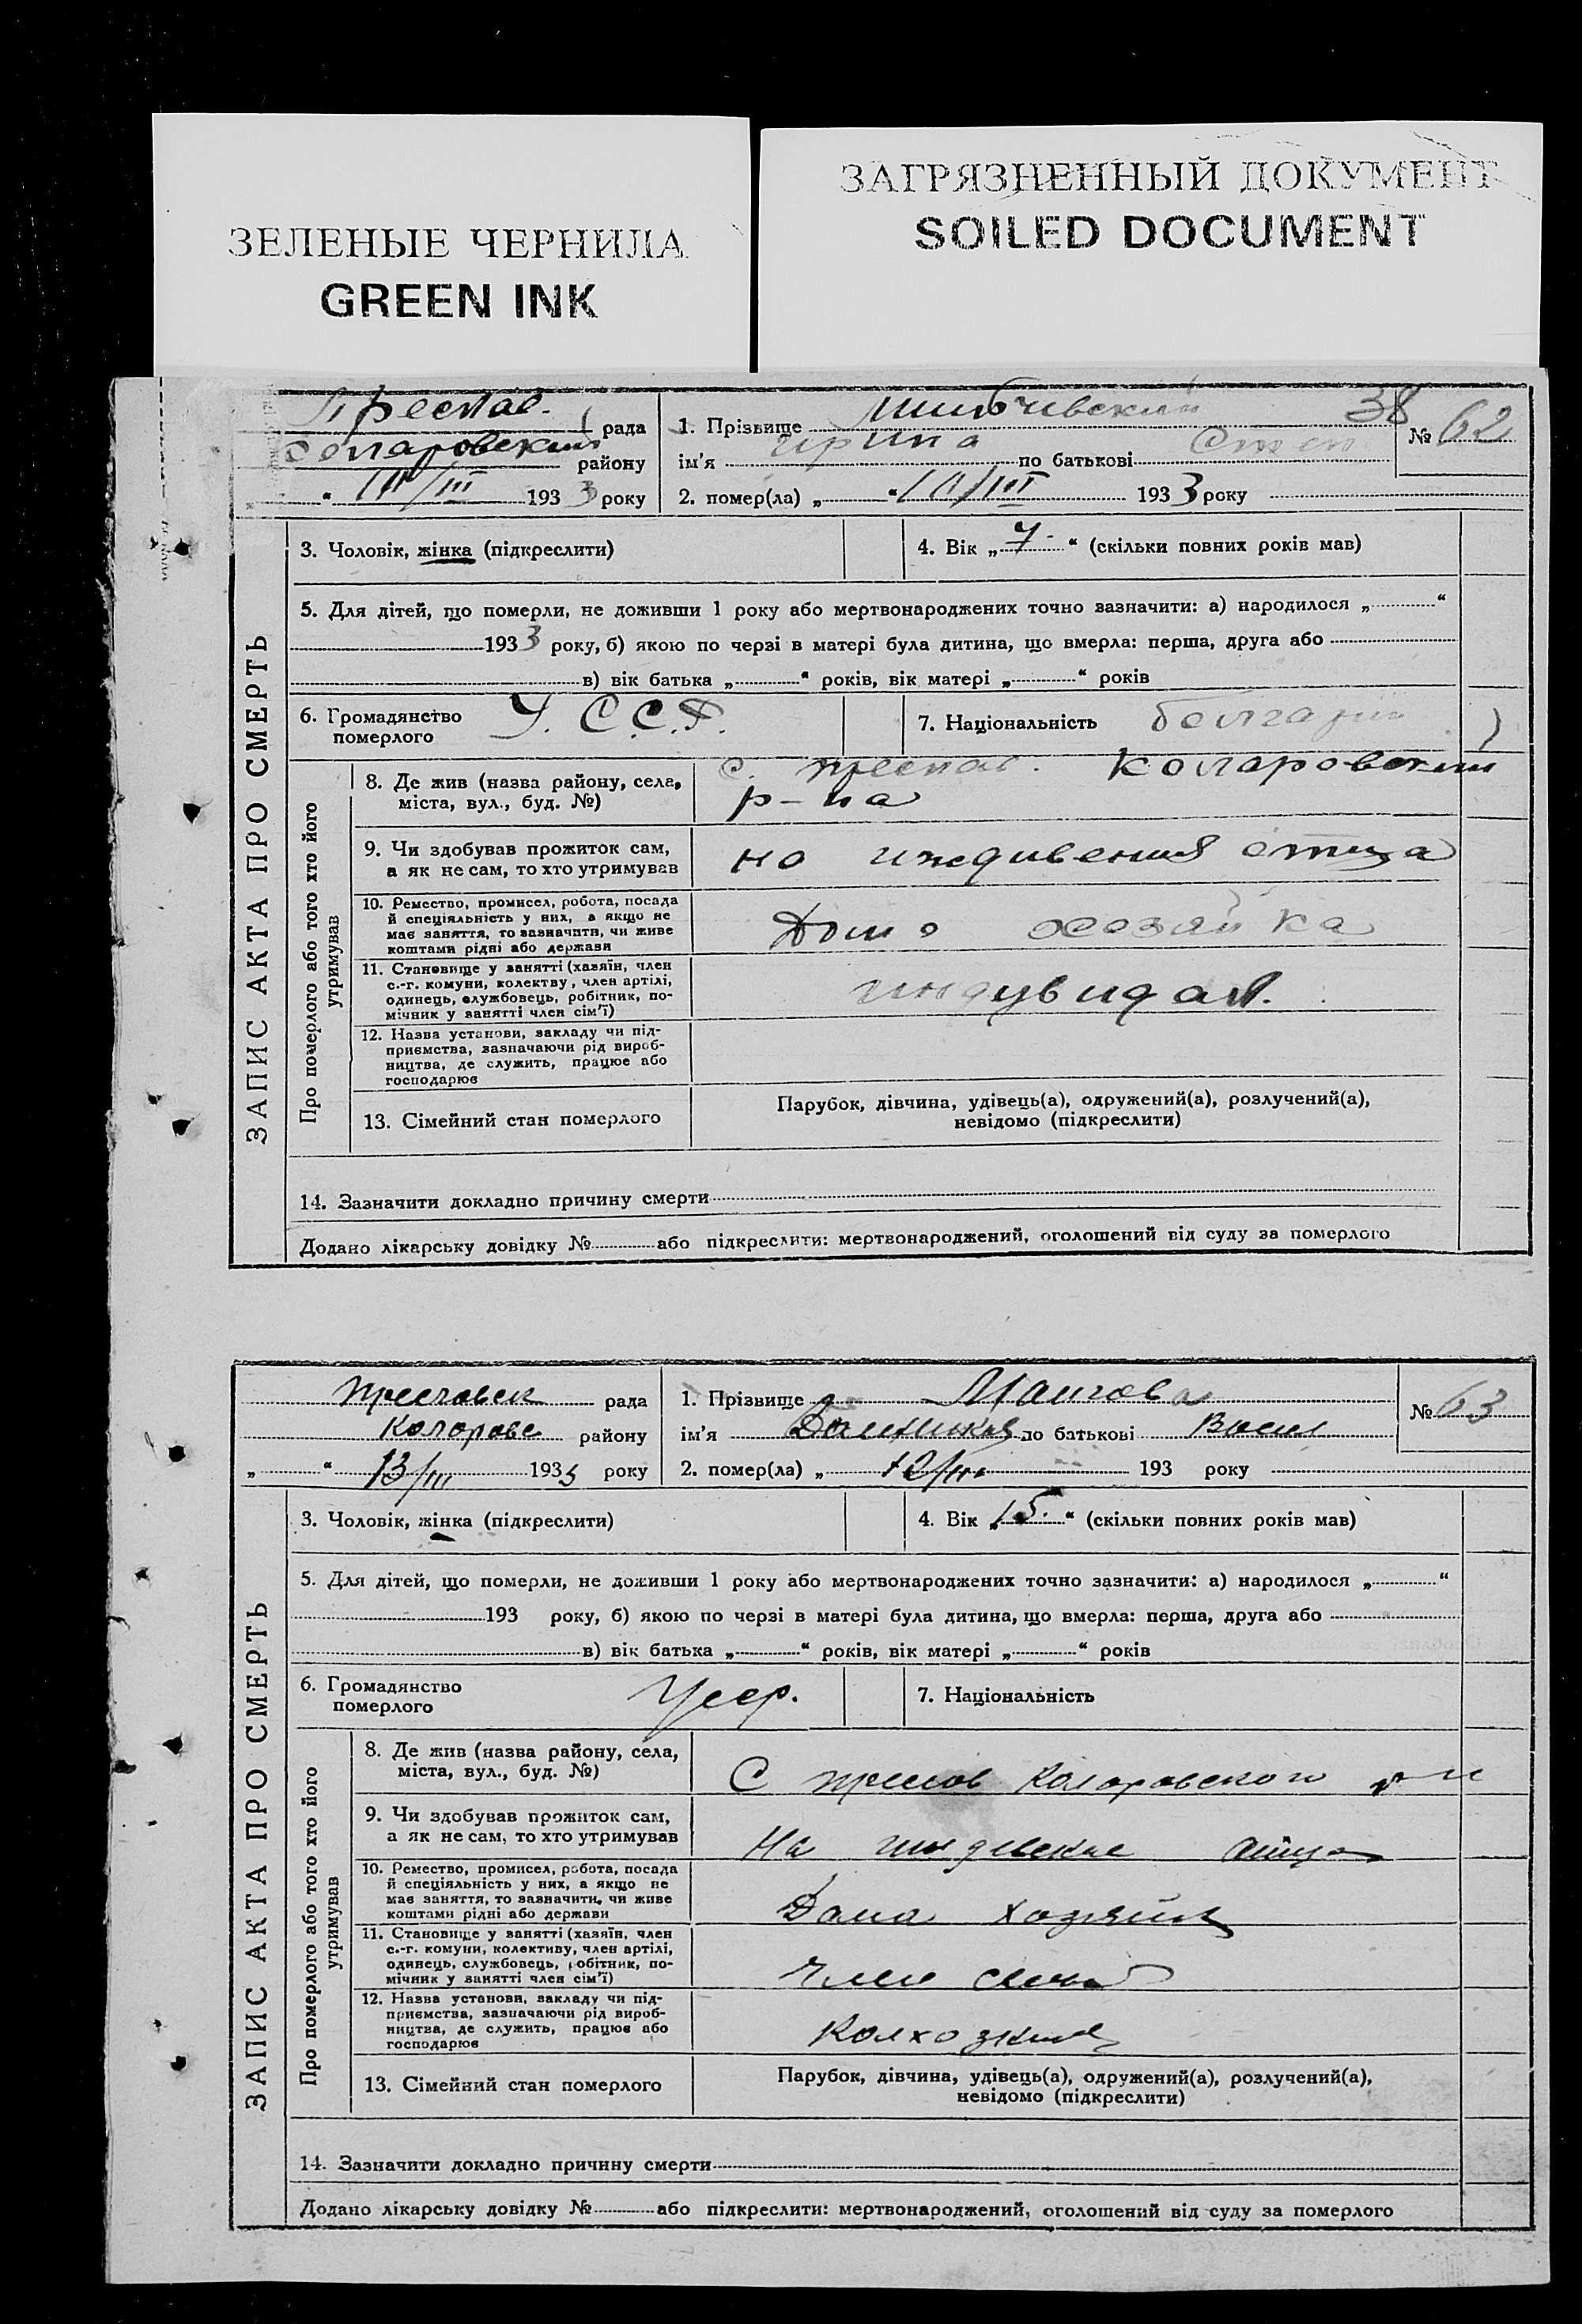 ЗЕЛЕНЫЕ ЧЕРНИЛА
GREEN INK
ЗАГРЯЗНЕННЫЙ ДОКУМЕНТ
SOILED DOCUMENT
ЗАПИС АКТА ПРО СМЕРТЬ
рада
району
193 3 року
38
№ 62
1. Прізвище
ім'я Ирина по батькові Степ
2. помер(ла) „ “ 193 3 року
3. Чоловік, жінка (підкреслити)
4. Вік „ 7 “ (скільки повних років мав)
5. Для дітей, що померли, не доживши 1 року або мертвонароджених точно зазначити: а) народилося „ “
193 3 року, б) якою по черзі в матері була дитина, що вмерла: перша, друга або
в) вік батька „ “ років, вік матері „ “ років
6. Громадянство
померлого
У.С.С.Р.
7. Національність
Про померлого або того хто його
утримував
8. Де жив (назва району, села,
міста, вул., буд. №)
с. Преслав. Коларовский
р-на
9. Чи здобував прожиток сам,
а як не сам, то хто утримував
на иждивения отца
10. Ремество, промисел, робота, посада
й спеціяльність у них, а якщо не
має заняття, то зазначити, чи живе
коштами рідні або держави
Домо хозяйка
11. Становище у занятті (хазяїн, член
с.-г. комуни, колективу, член артілі,
одинець, службовець, робітник, по-
мічник у занятті член сім'ї)
индувидал.
12. Назва установи, закладу чи під-
приємства, зазначаючи рід вироб-
ництва, де служить, працює або
господарює
13. Сімейний стан померлого
Парубок, дівчина, удівець(а), одружений(а), розлучений(а),
невідомо (підкреслити)
14. Зазначити докладно причину смерти
Додано лікарську довідку № або підкреслити: мертвонароджений, оголошений від суду за померлого
ЗАПИС АКТА ПРО СМЕРТЬ
Преславск рада
Коларовс району
„ “ 13/III 1933 року
№ 63
1. Прізвище
ім'я по батькові Васил
2. помер(ла) „ 12/III 193 року
3. Чоловік, жінка (підкреслити)
4. Вік „ 15. “ (скільки повних років мав)
5. Для дітей, що померли, не доживши 1 року або мертвонароджених точно зазначити: а) народилося „ “
193 року, б) якою по черзі в матері була дитина, що вмерла: перша, друга або
в) вік батька „ “ років, вік матері „ “ років
6. Громадянство
померлого
Усср.
7. Національність
Про померлого або того хто його
утримував
8. Де жив (назва району, села,
міста, вул., буд. №)
С Преслав Коларовского
9. Чи здобував прожиток сам,
а як не сам, то хто утримував
На
10. Ремество, промисел, робота, посада
й спеціяльність у них, а якщо не
має заняття, то зазначити, чи живе
коштами рідні або держави
Дама
11. Становище у занятті (хазяїн, член
с.-г. комуни, колективу, член артілі,
одинець, службовець, робітник, по-
мічник у занятті член сім'ї)
Член
12. Назва установи, закладу чи під-
приємства, зазначаючи рід вироб-
ництва, де служить, працює або
господарює
13. Сімейний стан померлого
Парубок, дівчина, удівець(а), одружений(а), розлучений(а),
невідомо (підкреслити)
14. Зазначити докладно причину смерти
Додано лікарську довідку № або підкреслити: мертвонароджений, оголошений від суду за померлого